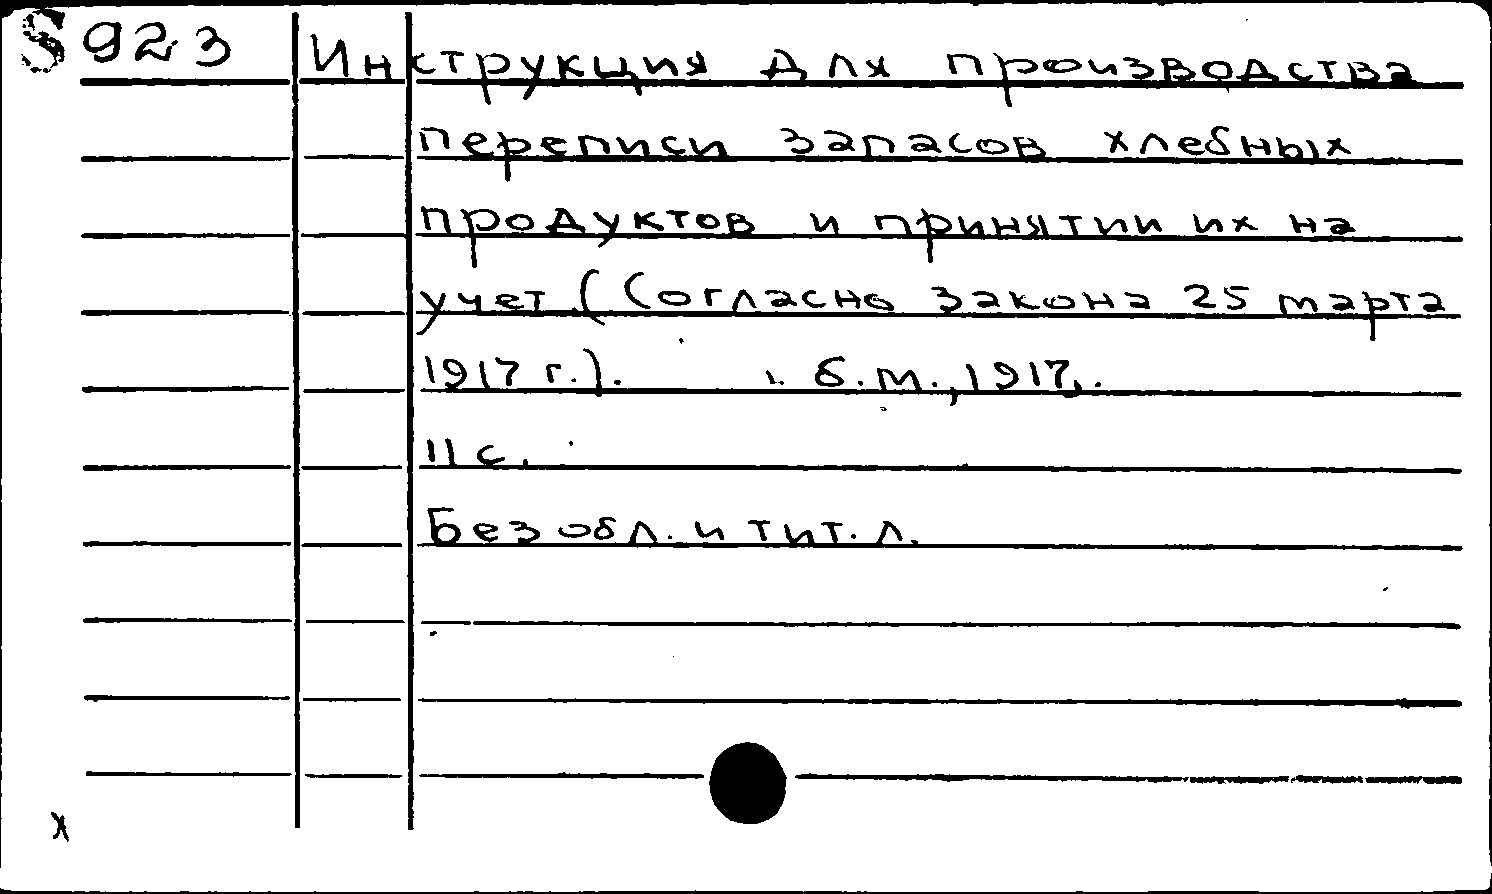 S 923 Инструкция для производства
переписи запасов хлебных
продуктов и принятии их на
учет. (Согласно закона 25 марта
1917 г.). б.м., 1917.
11 с.
Без обл. и тит. л.
x